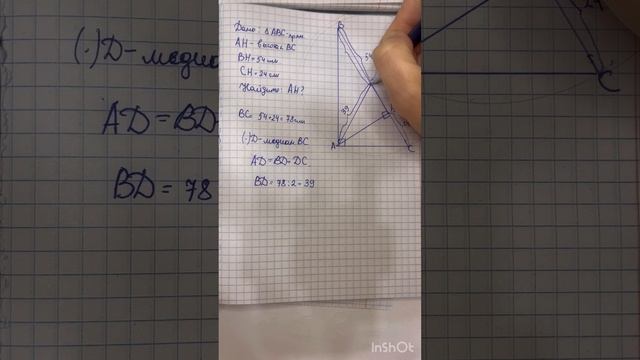 Дано: △ABC-прям.
AH - высота к BC
BH = 54 см
CH = 24 см
Найдите: AH?
BC = 54+24 = 78 см
(·)D - медиан BC
AD = BD = DC
BD = 78 : 2 = 39
B
54
39
A
C
(·)D - медиан
AD = BD
BD = 78
24
C
InShOt